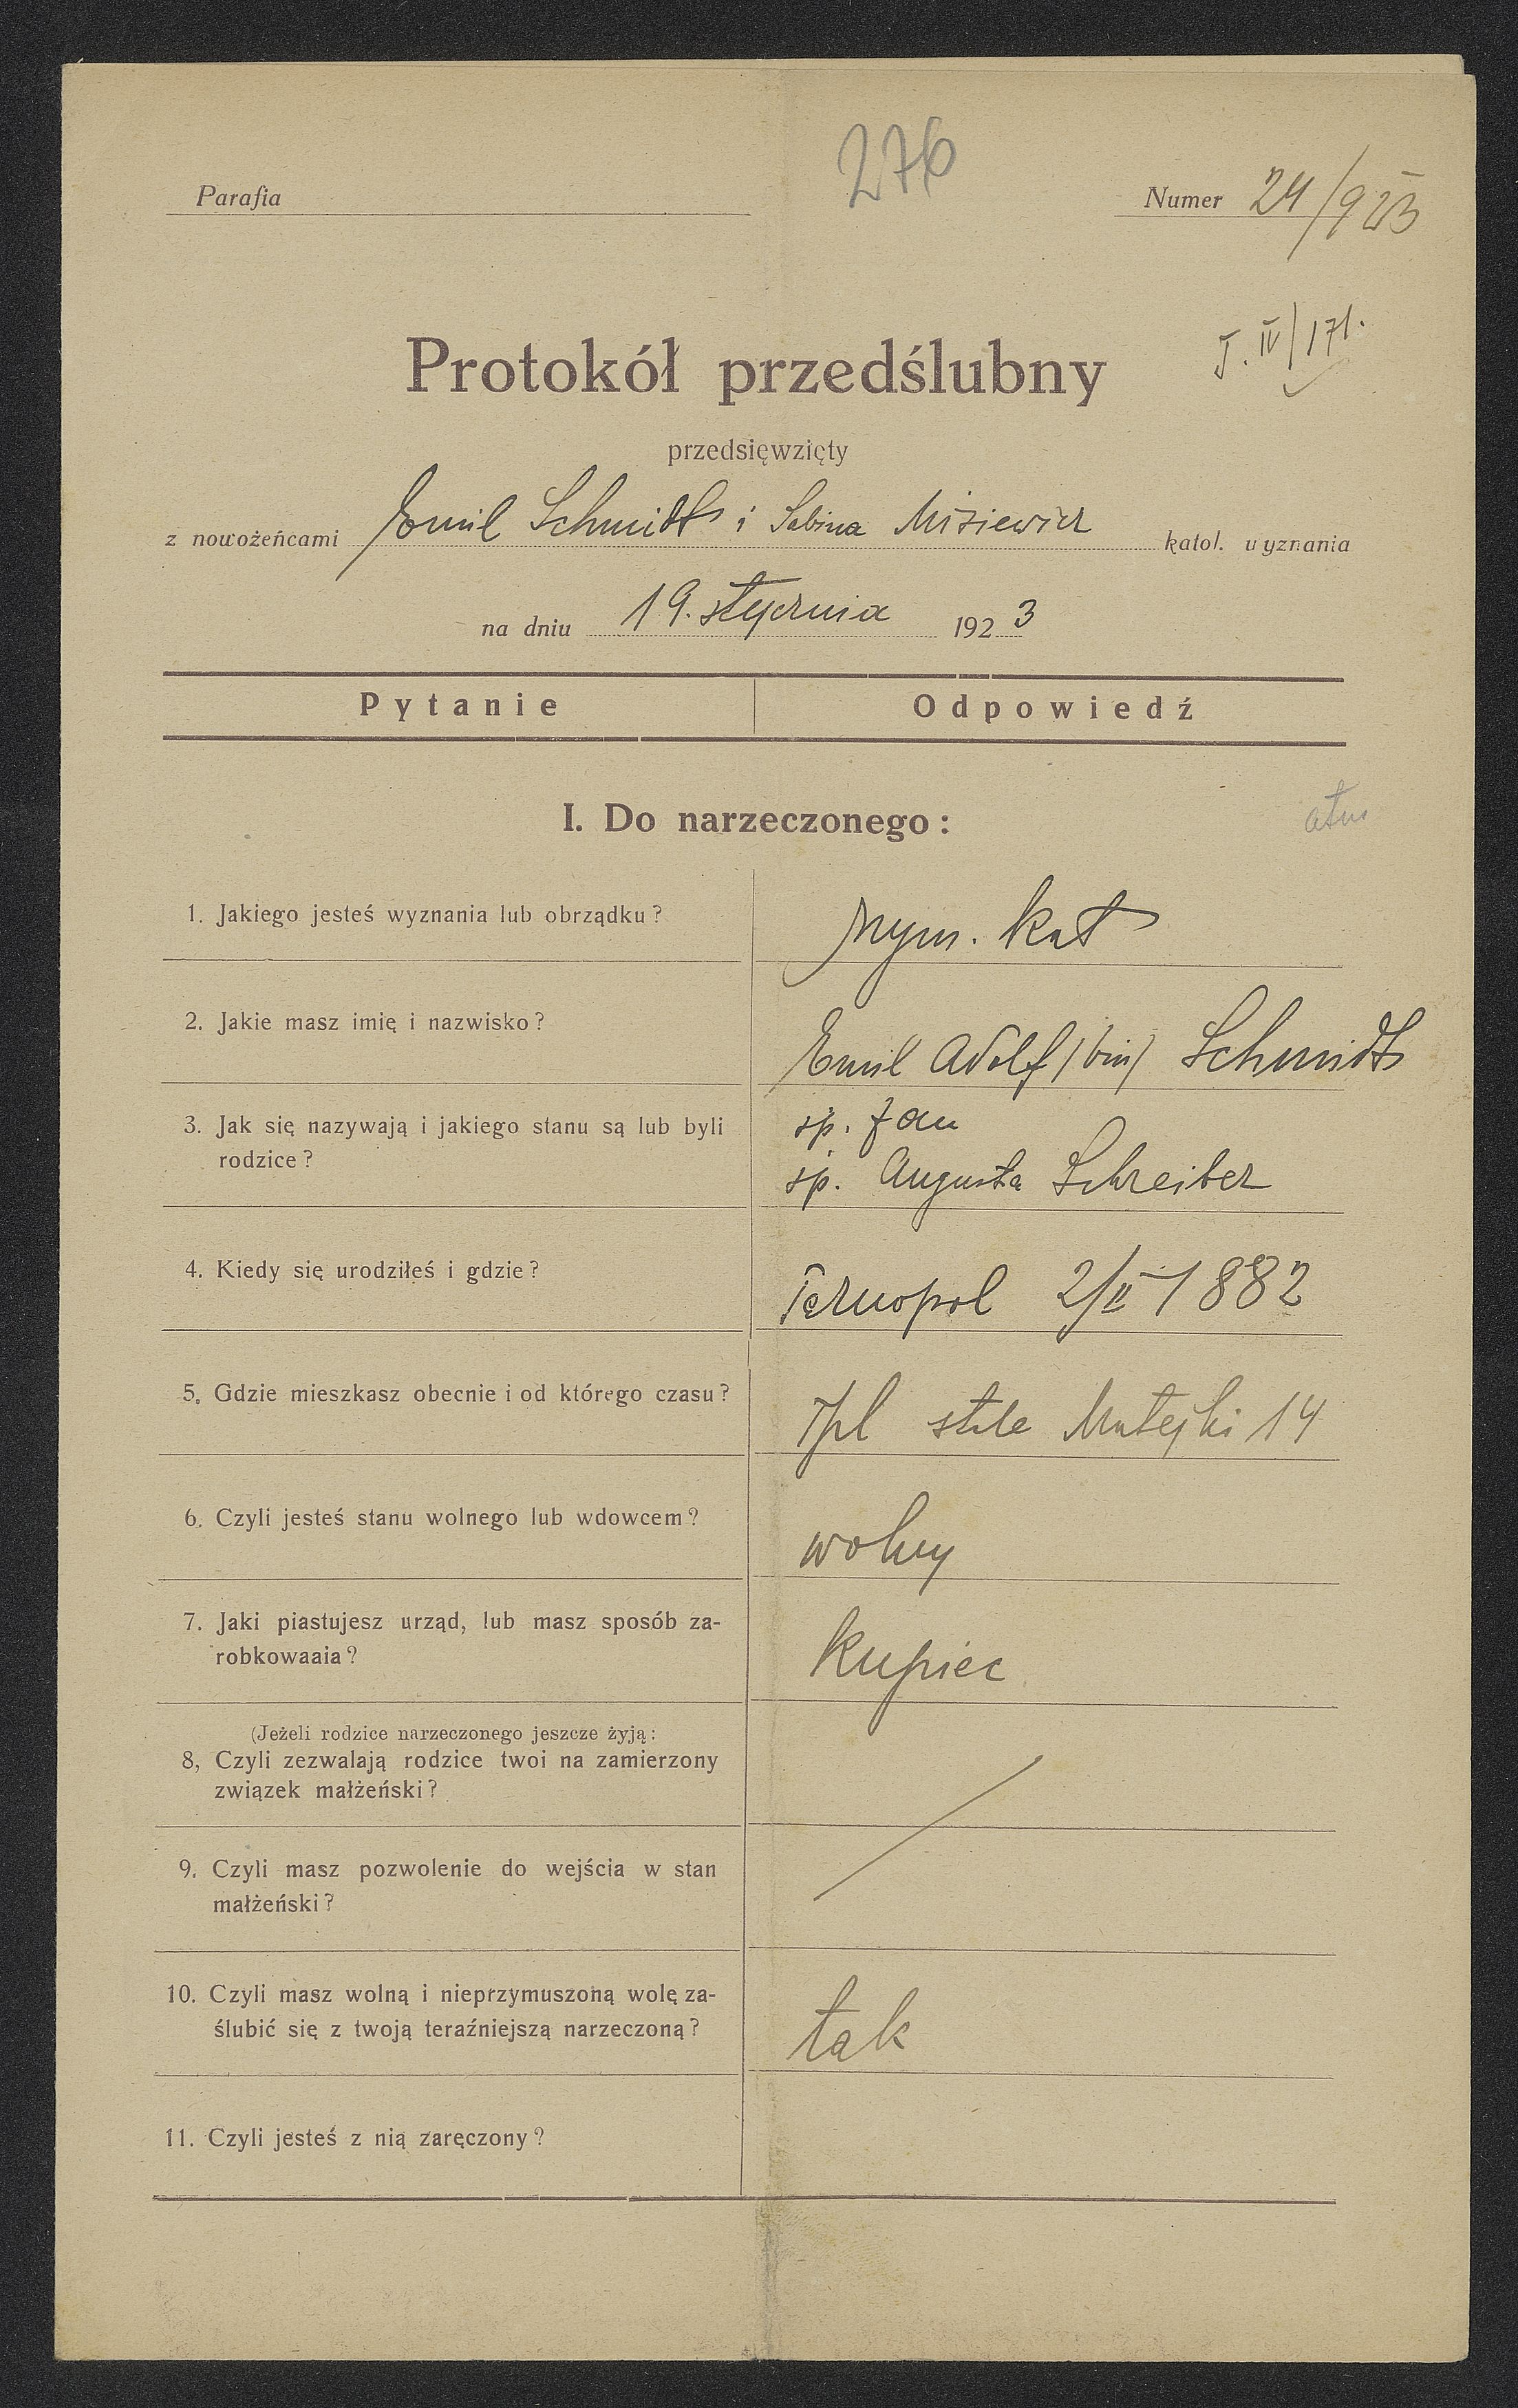 276
Parafia
Numer 24/923
T. IV/171.
Protokół przedślubny
przedsięwzięty
z nowożeńcami Emil Schmidt i Sabina Misiewicz katol. wyznania
na dniu 19. stycznia 1923
Pytanie Odpowiedź
I. Do narzeczonego:
1. Jakiego jesteś wyznania lub obrządku? rzym. kat
2. Jakie masz imię i nazwisko? Emil Adolf (bin) Schmidt
3. Jak się nazywają i jakiego stanu są lub byli śp. Jan
rodzice? śp. Augusta Schreiber
4. Kiedy się urodziłeś i gdzie? Tarnopol 2/II 1882
5. Gdzie mieszkasz obecnie i od którego czasu? Tpl stale Matejki 14
6. Czyli jesteś stanu wolnego lub wdowcem? wolny
7. Jaki piastujesz urząd, lub masz sposób za-
robkowaaia? kupiec
(Jeżeli rodzice narzeczonego jeszcze żyją:
8, Czyli zezwalają rodzice twoi na zamierzony
związek małżeński?
9. Czyli masz pozwolenie do wejścia w stan
małżeński?
10. Czyli masz wolną i nieprzymuszoną wolę za-
ślubić się z twoją teraźniejszą narzeczoną? tak
11. Czyli jesteś z nią zaręczony?